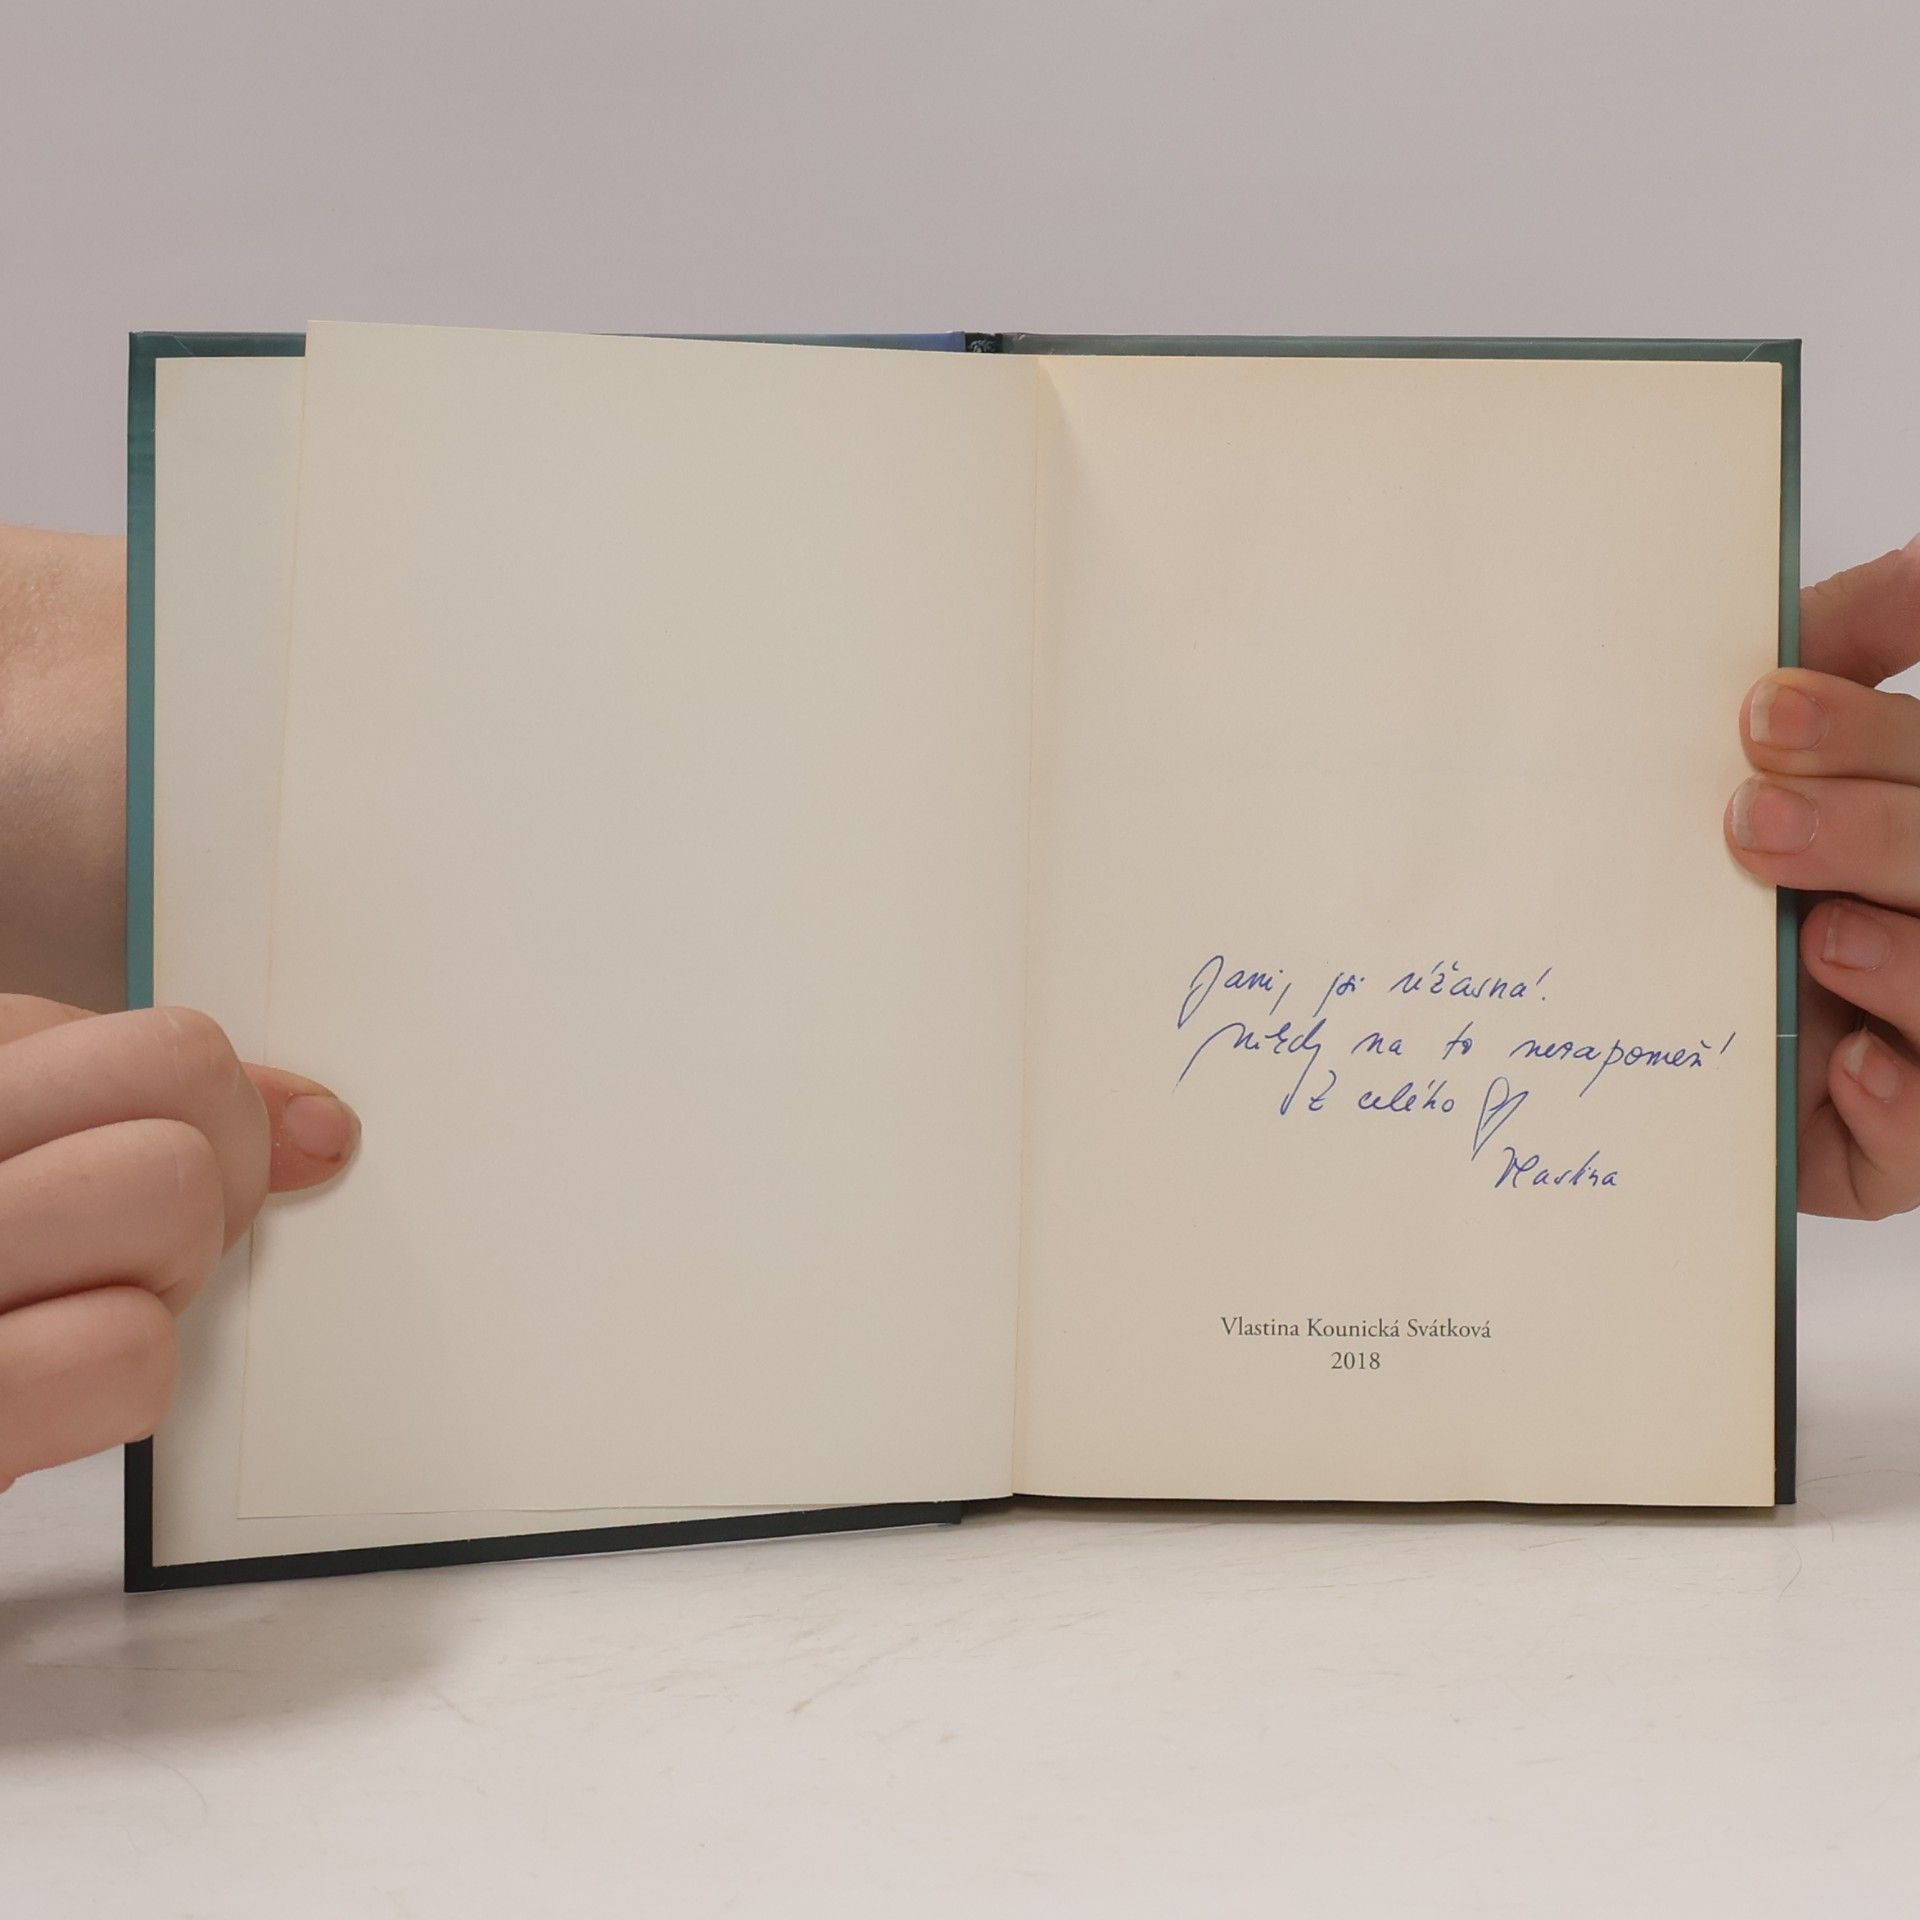 Jani, jsi úžasná!
Nikdy na to nezapomeň!
Z celého
Vlastina
Vlastina Kounická Svátková
2018